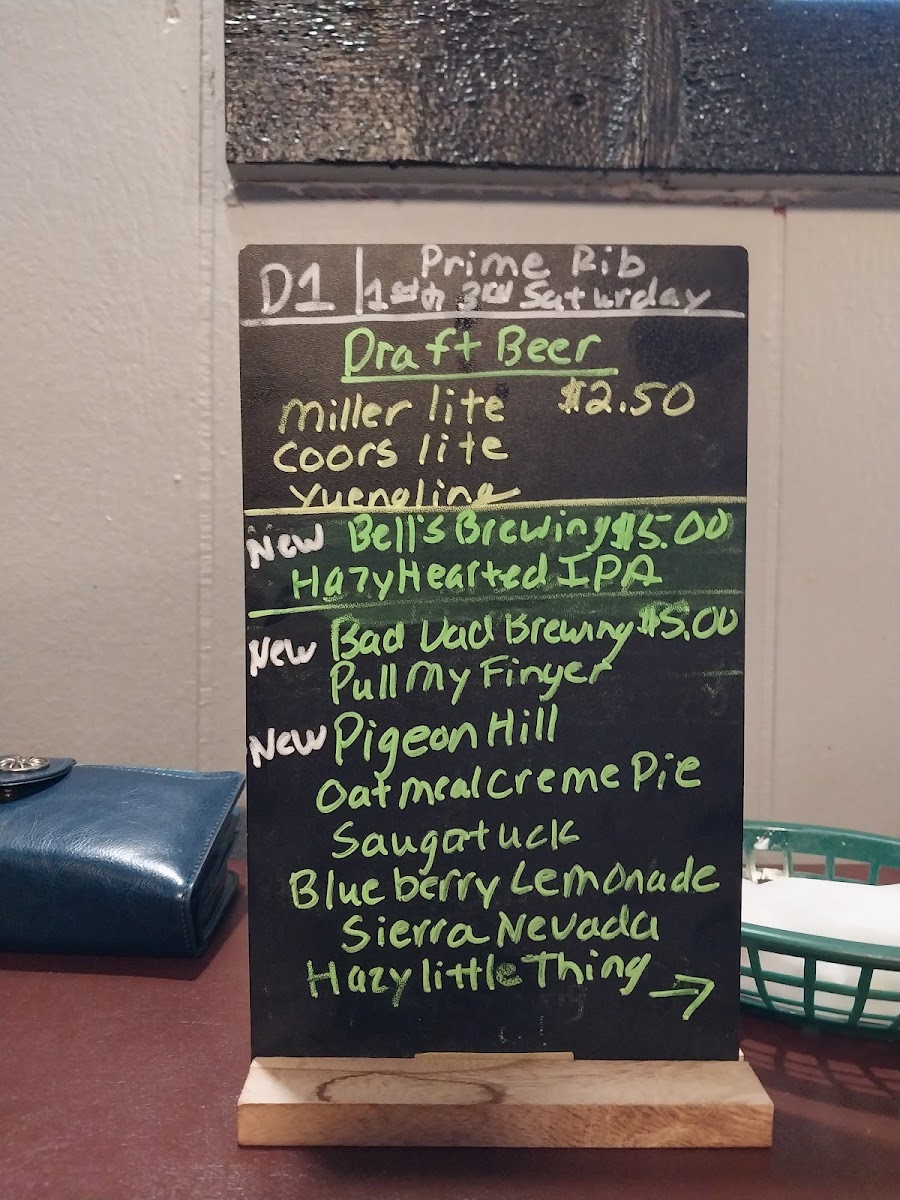 D1 | Prime Rib
1st & 3rd Saturday
Draft Beer
Miller lite $2.50
Coors lite
Yuengling
New Bell's Brewing $5.00
Hazy Hearted IPA
New Bad Dad Brewing $5.00
Pull My Finger
New Pigeon Hill
Oatmeal Creme Pie
Saugatuck
Blueberry Lemonade
Sierra Nevada
Hazy little Thing →